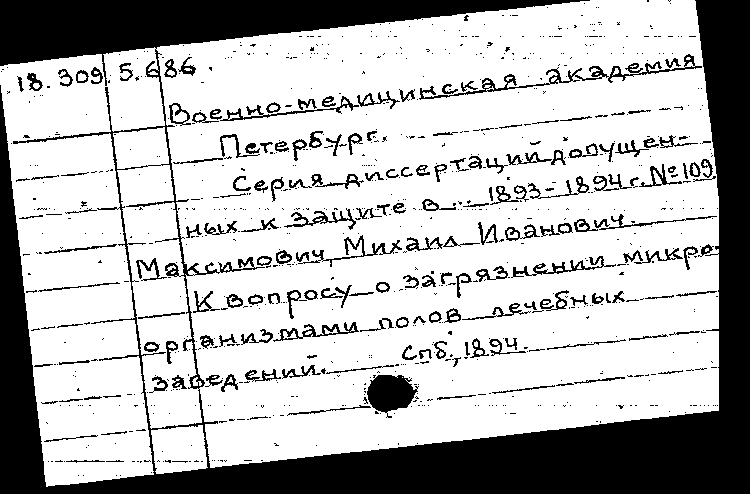 18.309.5.686.
Военно-медицинская академия
Петербург.
Серия диссертаций допущен-
ных к защите в ... 1893-1894 г. №109
Максимович, Михаил Иванович.
К вопросу о загрязнении микро-
организмами полов лечебных
заведений. Спб., 1894.